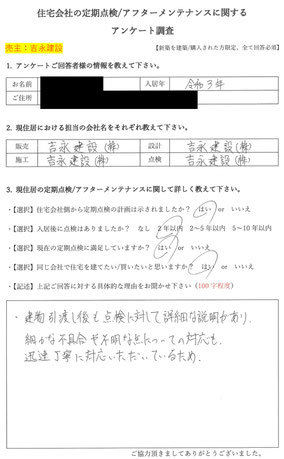 住宅会社の定期点検/アフターメンテナンスに関する
アンケート調査
売主：吉永建設
【新築を建築/購入された方限定、全て回答必須】
1. アンケートご回答者様の情報を教えて下さい。
お名前 入居年 令和3年
ご住所
2. 現住居における担当の会社名をそれぞれ教えて下さい。
販売 吉永建設(株) 設計 吉永建設(株)
施工 吉永建設(株) 点検 吉永建設(株)
3. 現住居の定期点検/アフターメンテナンスに関して詳しく教えて下さい。
・【選択】住宅会社側から定期点検の計画は示されましたか？ はい or いいえ
・【選択】入居後に点検はありましたか？ なし 2年以内 2～5年以内 5～10年以内
・【選択】現在の定期点検に満足していますか？ はい or いいえ
・【選択】同じ会社で住宅を建てたい/買いたいと思いますか？ はい or いいえ
・【記述】上記ご回答に対する具体的な理由をお聞かせ下さい（100字程度）
・建物引渡し後も点検に対して詳細な説明があり、
細かな不具合や不明な点についての対応も、
迅速丁寧に対応いただいているため。
ご協力頂きましてありがとうございました。